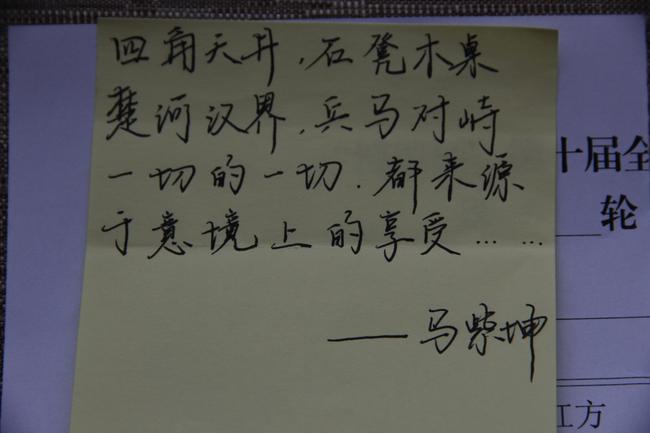 四角天井，石凳木桌
楚河汉界，兵马对峙
一切的一切．都来源
于意境上的享受……
——马紫坤
十届全
轮
江方